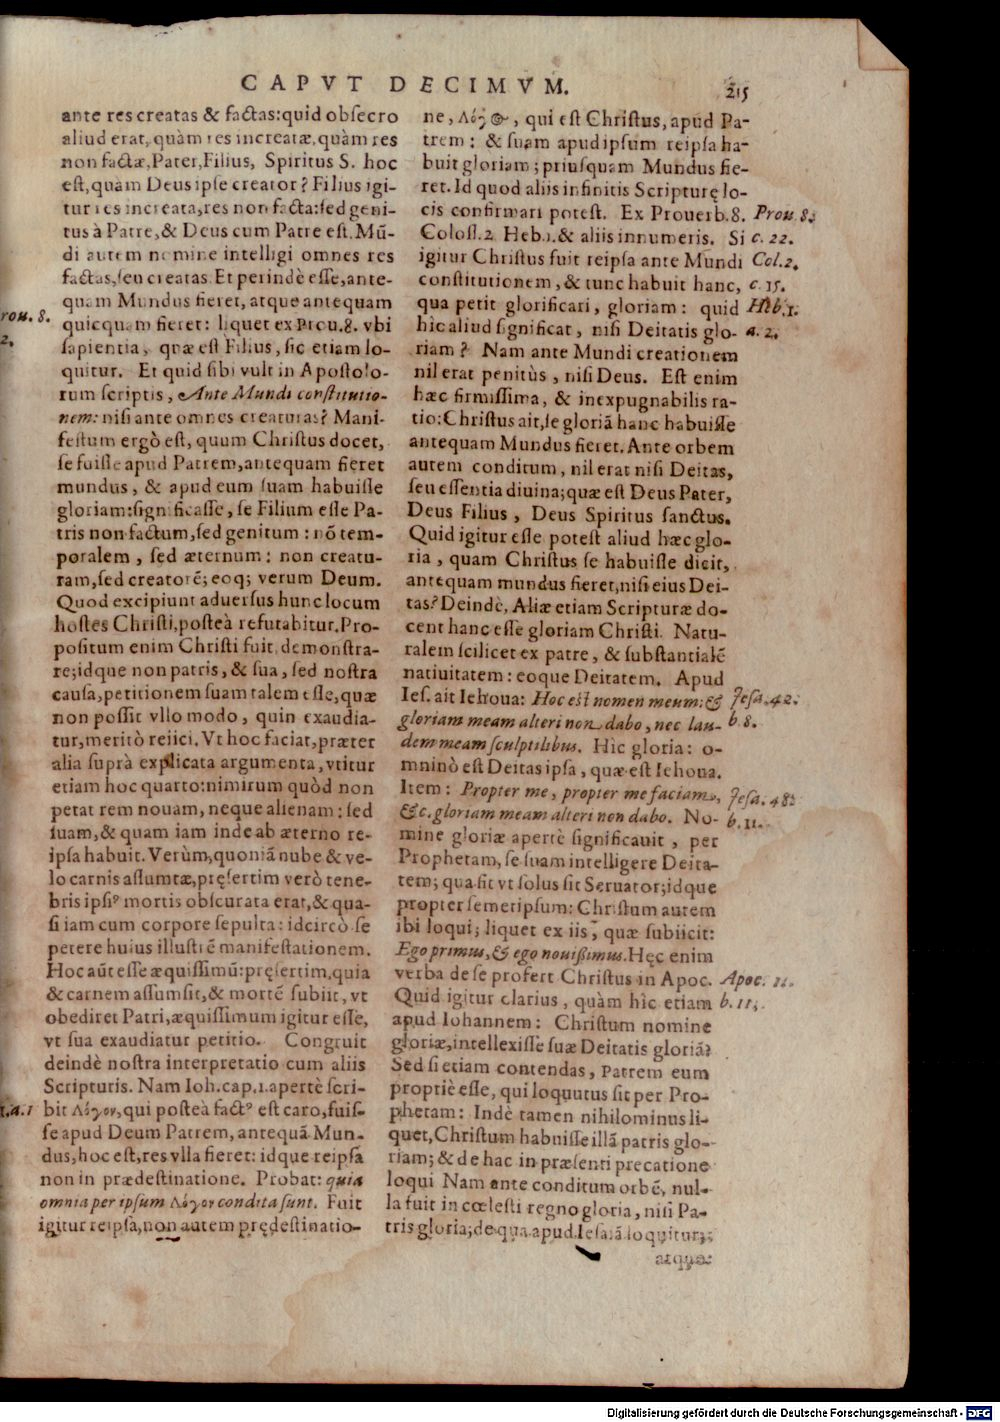 CAPVT DECIMVM.
215
ante res creatas & factas: quid obsecro
aliud erat, quàm res increatæ, quàm res
non factæ, Pater, Filius, Spiritus S. hoc
est, quàm Deus ipse creator? Filius igi-
tur res increata, res non facta: sed geni-
tus à Patre, & Deus cum Patre est. Mũ-
di autem nomine intelligi omnes res
factas, seu creatas. Et perindè esse, ante-
quam Mundus fieret, atque antequam
quicquam fieret: liquet ex Prou. 8. vbi
sapientia, quæ est Filius, sic etiam lo-
quitur. Et quid sibi vult in Apostolo-
rum scriptis, Ante Mundi constitutio-
nem: nisi ante omnes creaturas? Mani-
festum ergò est, quum Christus docet,
se fuisse apud Patrem, antequam fieret
mundus, & apud eum suam habuisse
gloriam: significasse, se Filium esse Pa-
tris non factum, sed genitum: nõ tem-
poralem, sed æternum: non creatu-
ram, sed creatorẽ; eoq; verum Deum.
Quod excipiunt aduersus hunc locum
hostes Christi, posteà refutabitur. Pro-
positum enim Christi fuit, demonstra-
re; idque non patris, & sua, sed nostra
causa, petitionem suam talem esse, quæ
non possit vllo modo, quin exaudia-
tur, meritò reiici. Vt hoc faciat, præter
alia suprà explicata argumenta, vtitur
etiam hoc quarto: nimirum quòd non
petat rem nouam, neque alienam: sed
suam, & quam iam inde ab æterno re-
ipsa habuit. Verùm, quoniã nube & ve-
lo carnis assumtæ, pręsertim verò tene-
bris ipsiꝰ mortis obscurata erat, & qua-
si iam cum corpore sepulta: idcircò se
petere huius illustrẽ manifestationem.
Hoc aũt esse æquissimũ: pręsertim, quia
& carnem assumsit, & mortẽ subiit, vt
obediret Patri, æquissimum igitur esse,
vt sua exaudiatur petitio. Congruit
deindè nostra interpretatio cum aliis
Scripturis. Nam Ioh. cap. 1. apertè scri-
bit Λόγον, qui posteà factꝰ est caro, fuis-
se apud Deum Patrem, antequã Mun-
dus, hoc est, res vlla fieret: idque reipsa
non in prædestinatione. Probat: quia
omnia per ipsum Λόγον condita sunt. Fuit
igitur reipsa, non autem prędestinatio-
rou. 8.
2.
1.a.1
ne, Λόγος, qui est Christus, apud Pa-
trem: & suam apud ipsum reipsa ha-
buit gloriam; priusquam Mundus fie-
ret. Id quod aliis infinitis Scripturę lo-
cis confirmari potest. Ex Prouerb. 8.
Coloss. 2. Heb. 1. & aliis innumeris. Si
igitur Christus fuit reipsa ante Mundi
constitutionem, & tunc habuit hanc,
qua petit glorificari, gloriam: quid
hìc aliud significat, nisi Deitatis glo-
riam? Nam ante Mundi creationem
nil erat penitùs, nisi Deus. Est enim
hæc firmissima, & inexpugnabilis ra-
tio: Christus ait, se gloriã hanc habuisse
antequam Mundus fieret. Ante orbem
autem conditum, nil erat nisi Deitas,
seu essentia diuina; quæ est Deus Pater,
Deus Filius, Deus Spiritus sanctus.
Quid igitur esse potest aliud hæc glo-
ria, quam Christus se habuisse dicit,
antequam mundus fieret, nisi eius Dei-
tas? Deindè, Aliæ etiam Scripturæ do-
cent hanc esse gloriam Christi. Natu-
ralem scilicet ex patre, & substantialẽ
natiuitatem: eoque Deitatem. Apud
Ies. ait Iehoua: Hoc est nomen meum: &
gloriam meam alteri non dabo, nec lau-
dem meam sculptilibus. Hìc gloria: o-
mninò est Deitas ipsa, quæ est Iehoua.
Item: Propter me, propter me faciam,
&c. gloriam meam alteri non dabo. No-
mine gloriæ apertè significauit, per
Prophetam, se suam intelligere Deita-
tem; qua fit vt solus sit Seruator; idque
propter semetipsum: Christum autem
ibi loqui; liquet ex iis, quæ subiicit:
Ego primus, & ego nouißimus. Hęc enim
verba de se profert Christus in Apoc.
Quid igitur clarius, quàm hìc etiam
apud Iohannem: Christum nomine
gloriæ, intellexisse suæ Deitatis gloriã?
Sed si etiam contendas, Patrem eum
propriè esse, qui loquutus sit per Pro-
phetam: Indè tamen nihilominus li-
quet, Christum habuisse illã patris glo-
riam; & de hac in præsenti precatione
loqui. Nam ante conditum orbẽ, nul-
la fuit in cœlesti regno gloria, nisi Pa-
tris gloria; de qua apud Iesaiã loquitur;
atque
Prou. 8.
c. 22.
Col. 2.
c. 15.
Heb. 1.
a. 2.
Jesa. 42.
b. 8.
Jesa. 48.
b. 11.
Apoc. 11.
b. 11.
Digitalisierung gefördert durch die Deutsche Forschungsgemeinschaft - DFG